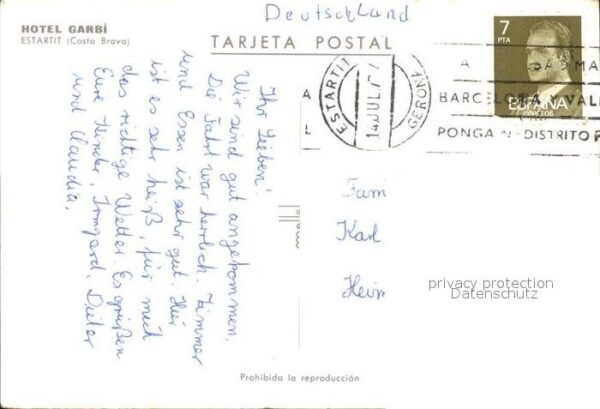 Deutschland
HOTEL GARBÍ
ESTARTIT (Costa Brava)
TARJETA POSTAL
7
PTA
ESPAÑA
CORREOS
ESTARTIT
14 JUL
GERONA
A
L
A
BARCELONA
PONGA DISTRITO P
Ihr Lieben!
Wir sind gut angekommen.
Die Fahrt war herrlich. Zimmer
und Essen ist sehr gut. Hier
ist es sehr heiß, für mich
das richtige Wetter. Es grüßen
Eure Kinder, Irmgard, Dieter
und Claudia.
Fam
Karl
Heim
privacy protection
Datenschutz
Prohibida la reproducción